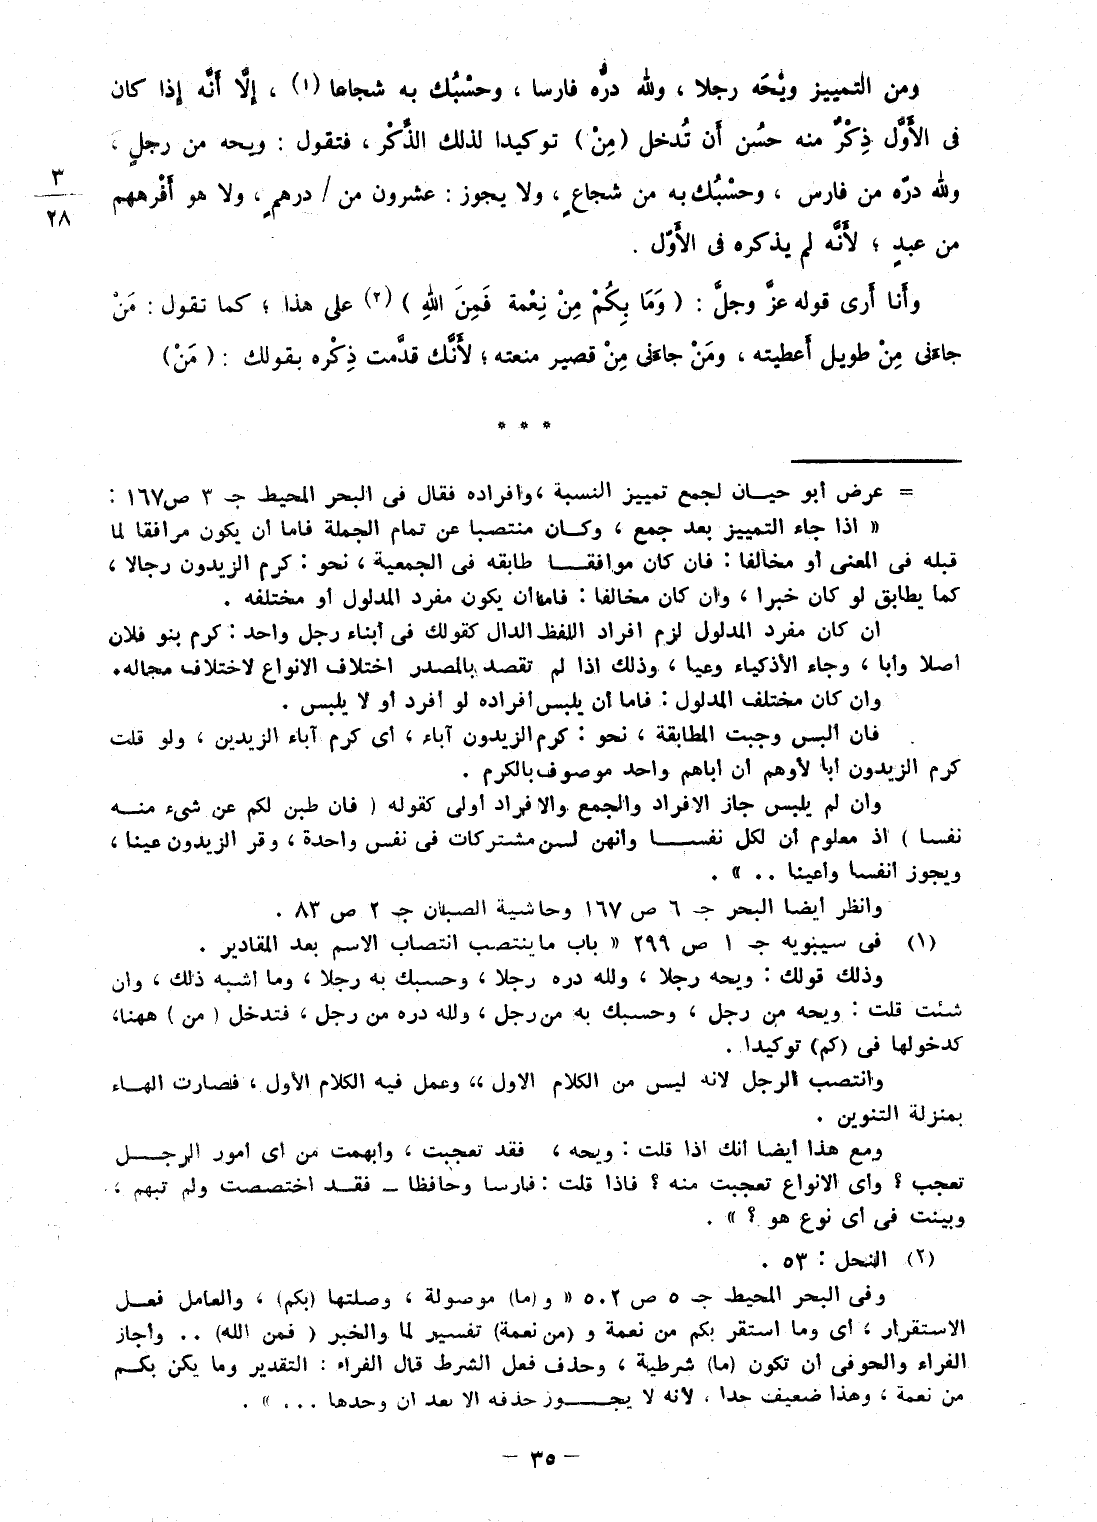 ومن التمييز ويْحَه رجلا ، ولله درُّه فارسا ، وحسْبُك به شجاعا (١) ، إلَّا أَنَّه إذا كان
فى الأَوَّل ذِكْرٌ منه حسُن أَن تُدخل (مِنْ) توكيدا لذلك الذِّكْر ، فتقول : ويحه من رجلٍ ،
ولله درّه من فارس ، وحسْبُك به من شجاعٍ ، ولا يجوز : عشرون من / درهمٍ ، ولا هو أَفْرههم
٣
٢٨
من عبدٍ ؛ لأَنَّه لم يذكره فى الأَوّل .
وأَنا أَرى قوله عزَّ وجلَّ : ( وَمَا بِكُمْ مِنْ نِعْمة فَمِنَ اللهِ ) (٢) على هذا ؛ كما تقول : مَنْ
جاءَنى مِنْ طويل أَعطيته ، ومَنْ جاءَنى مِنْ قصير منعته ؛ لأَنَّك قدَّمت ذِكْره بقولك : ( مَنْ)
* * *
= عرض أبو حيـان لجمع تمييز النسبة ، وافراده فقال فى البحر المحيط جـ ٣ ص١٦٧ :
« اذا جاء التمييز بعد جمع ، وكـان منتصبا عن تمام الجملة فاما أن يكون مرافقا لما
قبله فى المعنى أو مخالفا : فان كان موافقـــا طابقه فى الجمعية ، نحو : كرم الزيدون رجالا ،
كما يطابق لو كان خبرا ، وان كان مخالفا : فاما أن يكون مفرد المدلول أو مختلفه .
ان كان مفرد المدلول لزم افراد اللفظ الدال كقولك فى أبناء رجل واحد : كرم بنو فلان
أصلا وأبا ، وجاء الأذكياء وعيا ، وذلك اذا لم تقصد بالمصدر اختلاف الانواع لاختلاف مجاله.
وان كان مختلف المدلول : فاما أن يلبس أفراده لو أفرد أو لا يلبس .
فان ألبس وجبت المطابقة ، نحو : كرم الزيدون آباء ، أى كرم آباء الزيدين ، ولو قلت
كرم الزيدون أبا لأوهم أن أباهم واحد موصوف بالكرم .
وان لم يلبس جاز الافراد والجمع والافراد أولى كقوله ( فان طبن لكم عن شىء منـــه
نفسا ) اذ معلوم أن لكل نفســـا وأنهن لسن مشتركات فى نفس واحدة ، وقر الزيدون عينا ،
ويجوز أنفسا وأعينا .. » .
وانظر أيضا البحر جـ ٦ ص ١٦٧ وحاشية الصبان جـ ٢ ص ٨٣ .
(١) فى سيبويه جـ ١ ص ٢٩٩ « باب ما ينتصب انتصاب الاسم بعد المقادير .
وذلك قولك : ويحه رجلا ، ولله دره رجلا ، وحسبك به رجلا ، وما أشبه ذلك ، وان
شئت قلت : ويحه من رجل ، وحسبك به من رجل ، ولله دره من رجل ، فتدخل ( من ) ههنا،
كدخولها فى (كم) توكيدا .
وانتصب الرجل لانه ليس من الكلام الاول ،، وعمل فيه الكلام الأول ، فصارت الهـاء
بمنزلة التنوين .
ومع هذا أيضا انك اذا قلت : ويحه ، فقد تعجبت ، وأبهمت من أى أمور الرجــل
تعجب ؟ وأى الانواع تعجبت منه ؟ فاذا قلت : فارسا وحافظا ــ فقـد اختصصت ولم تبهم ،
وبينت فى أى نوع هو ؟ » .
(٢) النحل : ٥٣ .
وفى البحر المحيط جـ ٥ ص ٥٠٢ « و (ما) موصولة ، وصلتها (بكم) ، والعامل فعـل
الاستقرار ، أى وما استقر بكم من نعمة و (من نعمة) تفسير لما والخبر ( فمن الله) .. وأجاز
الفراء والحوفى أن تكون (ما) شرطية ، وحذف فعل الشرط قال الفراء : التقدير وما يكن بكـم
من نعمة ، وهذا ضعيف جدا ، لأنه لا يجــوز حذفه الا بعد ان وحدها ... » .
— ٣٥ —